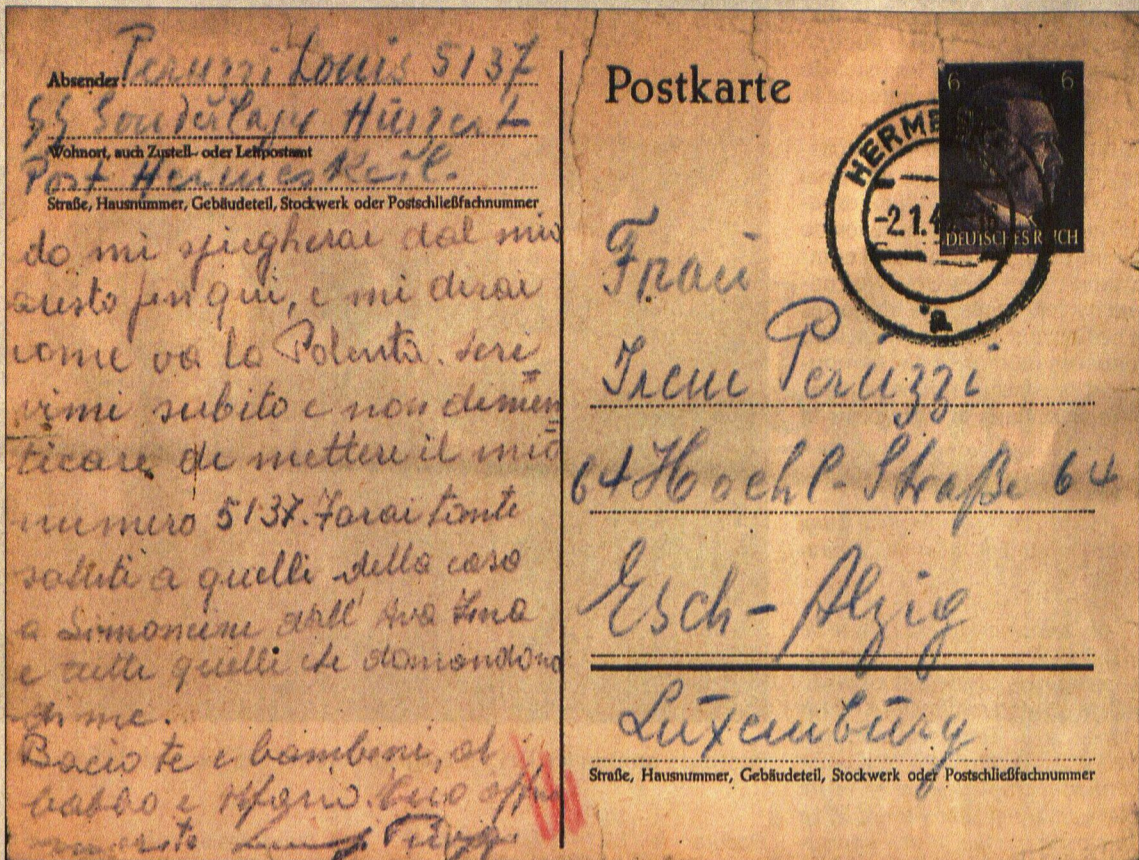 Absender: Peruzzi Louis 5137
SS Sonderlager Hinzert
Wohnort, auch Zustell- oder Leitpostamt
Post Hermeskeil.
Straße, Hausnummer, Gebäudeteil, Stockwerk oder Postschließfachnummer
do mi spiegherai dal mio
aresto fin qui, e mi dirai
come va la Polenta. Scri=
vimi subito e non dimen=
ticare di mettere il mio
numero 5137. Farai tante
saluti a quelli della casa
a Simoncini dall'
e tutti quelli che domandono
di me.
Bacio te e bambini, il
babbo e Tuo
Postkarte
6 6
DEUTSCHES REICH
HERMESKEIL
-2.1.4
a
Frau
Irene Peruzzi
64 Hoehl-Straße 64
Esch-Alzig
Luxemburg
Straße, Hausnummer, Gebäudeteil, Stockwerk oder Postschließfachnummer